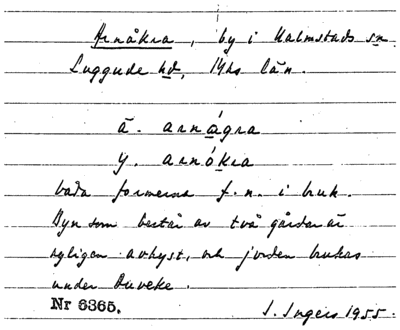 Arnåkra, by i Kalmstads sn
Luggude hd, Mhs län.
ä. arnágra
y. arnókra
båda formerna f.n. i bruk.
Byn som består av två gårdar är
nyligen avhyst, och jorden brukas
under Duveke.
Nr 6365. I. Ingers 1955.